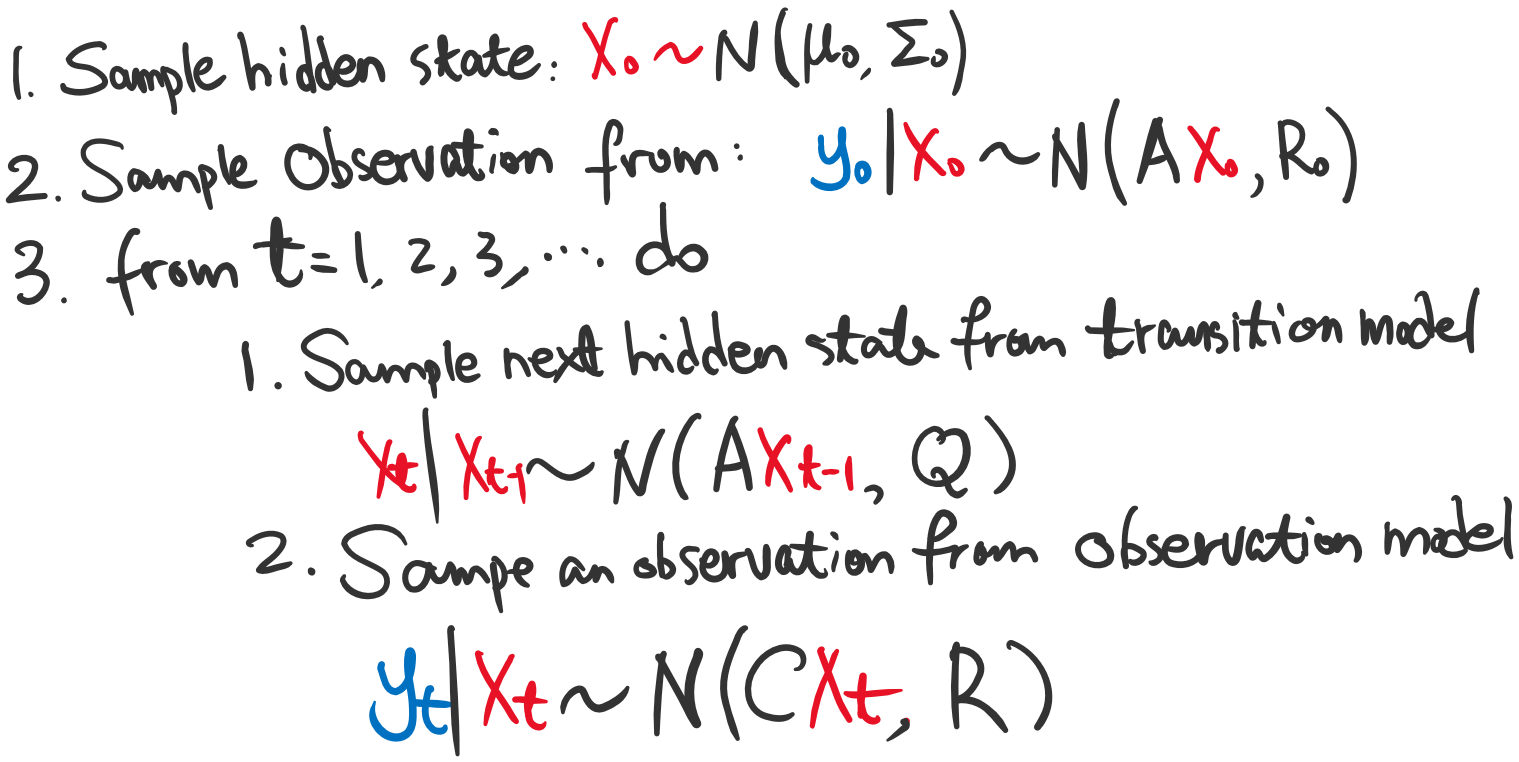 1. Sample hidden state: X₀ ~ N(μ₀, Σ₀)
2. Sample Observation from: y₀|X₀ ~ N(AX₀, R₀)
3. from t=1, 2, 3, ... do
1. Sample next hidden state from transition model
Xt|Xt-1 ~ N(AXt-1, Q)
2. Sampe an observation from observation model
yt|Xt ~ N(CXt, R)